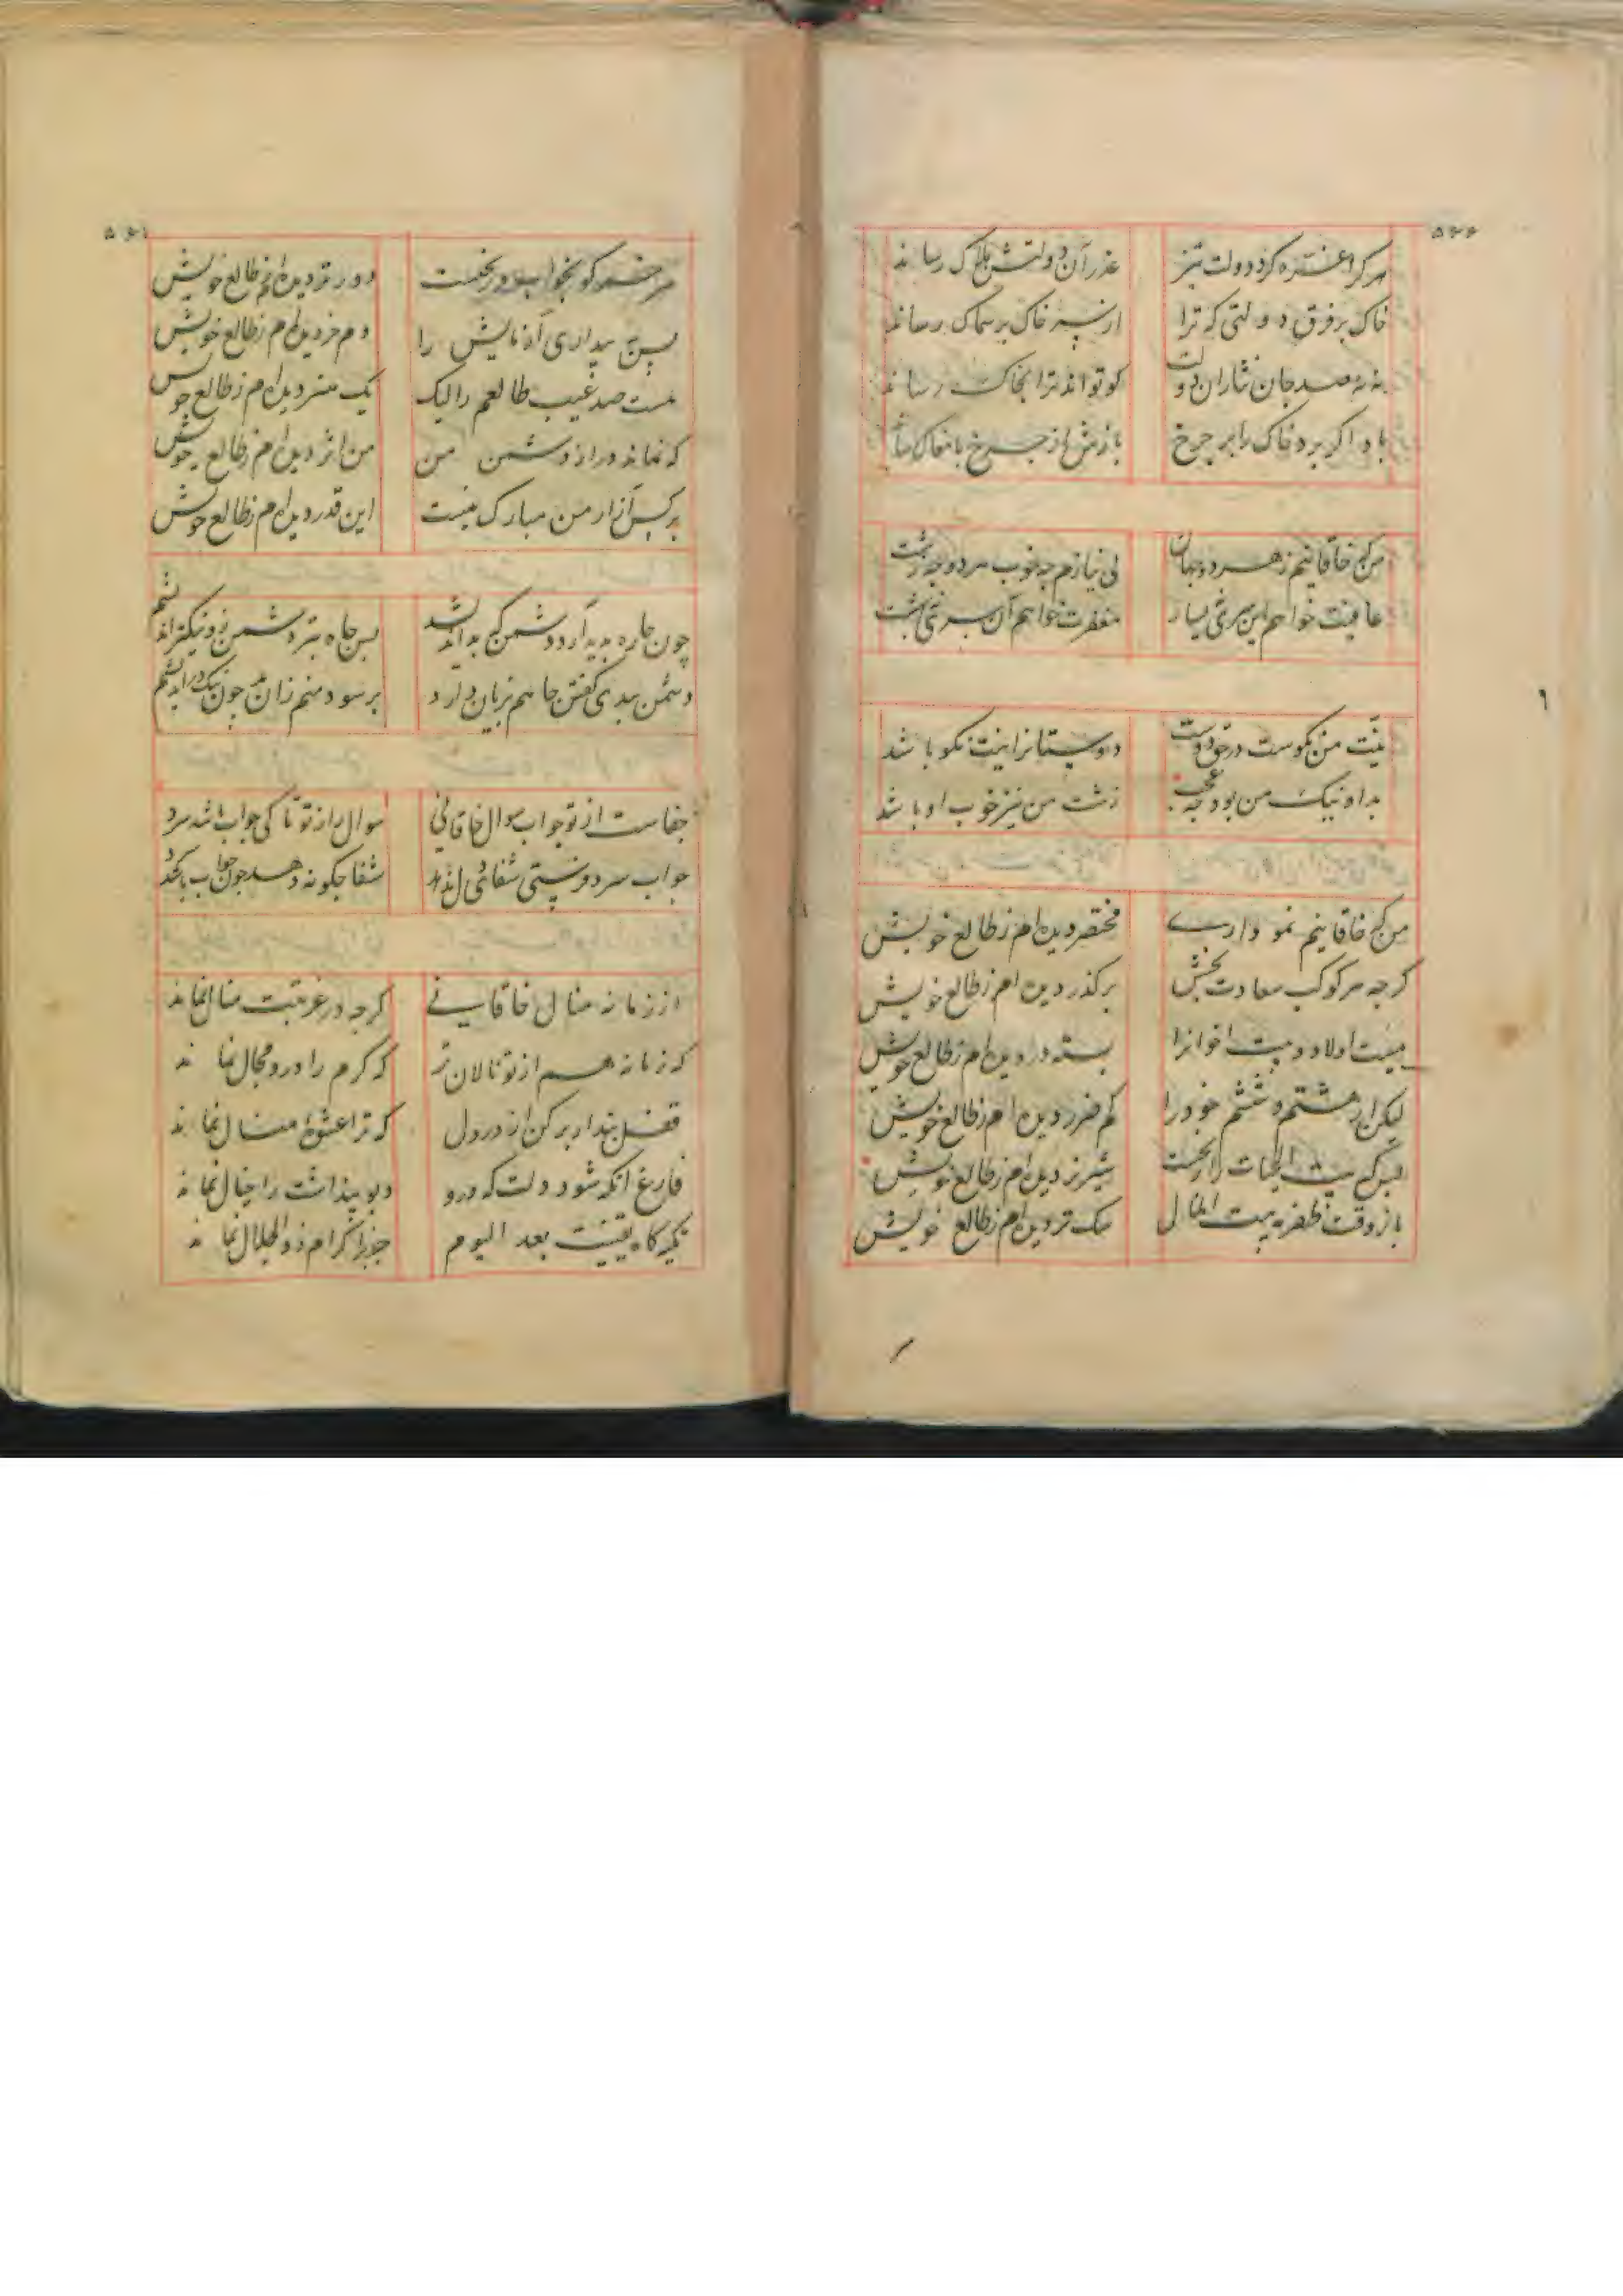 ۵۶۶
هر کرا غره کرد دولت تیز
عذر آن دولتش هلاک رساند
خاک بر فرق دولتی که ترا
از سر خاک بر سماک رساند
نه نه صد جان نثار آن دولت
کو تواند ترا بخاک رساند
باد اگر برد خاک را بر چرخ
بازش از چرخ با مغاک رساند
من که خاقانیم ز هر دو جهان
بی نیازم چه خوب مر دو چه زشت
عافیت خواهم این سری نه یسار
مغفرت خواهم آن سری نه بهشت
نیت من نکوست در حق دوست
دوستانرا نیت نکو باشد
بد او نیک من بود چه عجب
زشت من نیز خوب او باشد
من که خاقانیم نموداری
مختصر دیده‌ام ز طالع خویش
کرچه هر کوکب سعادت بخش
بر کذر دیده‌ام ز طالع خویش
بیت اولاد و بیت اخوانرا
بسته در دیده‌ام ز طالع خویش
لیک از هشتم و ششم خود را
کم ضرر دیده‌ام ز طالع خویش
لیک بیت الحیات را ز نخست
شیر نر دیده‌ام ز طالع خویش
باز وقت ظفر به بیت المال
سک تر دیده‌ام ز طالع خویش
۵۶۱
هر خضر کو بخواب در بخت
دور تر دیده‌ام ز طالع خویش
پس به بیداری آزمایش را
دم خر دیده‌ام ز طالع خویش
هست صد عیب طالعم را لیک
یک هنر دیده‌ام ز طالع خویش
که نماند دراز دشمن من
من اثر دیده‌ام ز طالع خویش
بر کس آزار من مبارک نیست
این قدر دیده‌ام ز طالع خویش
چون چاره پدید آرد دشمن که بد اندیشد
پس چاه بتر دشمن کو نیکتر اندیشم
دشمن ببدی کفتن جا هم زبان دارد
بر سود منم زان بد چون نیک در اندیشم
جفاست از تو جواب سوال خاقانی
سوال را ز تو تا کی جواب باشد سرد
جواب سرد فرستی شفای دل ندهد
شفا چکونه دهد چون جواب باشد سرد
از زمانه منال خاقانی
کرچه در غربتت منال نماند
که زمانه هم از تو نالان تر
که کرم را درو مجال نماند
قفل پندار بر کن از در دل
که ترا عشوهٔ منال نماند
فارغ آنکه شود دلت که درو
دیو پنداشت را خیال نماند
تکیه کاه یقینت بعد الیوم
جز در اکرام ذوالجلال نماند